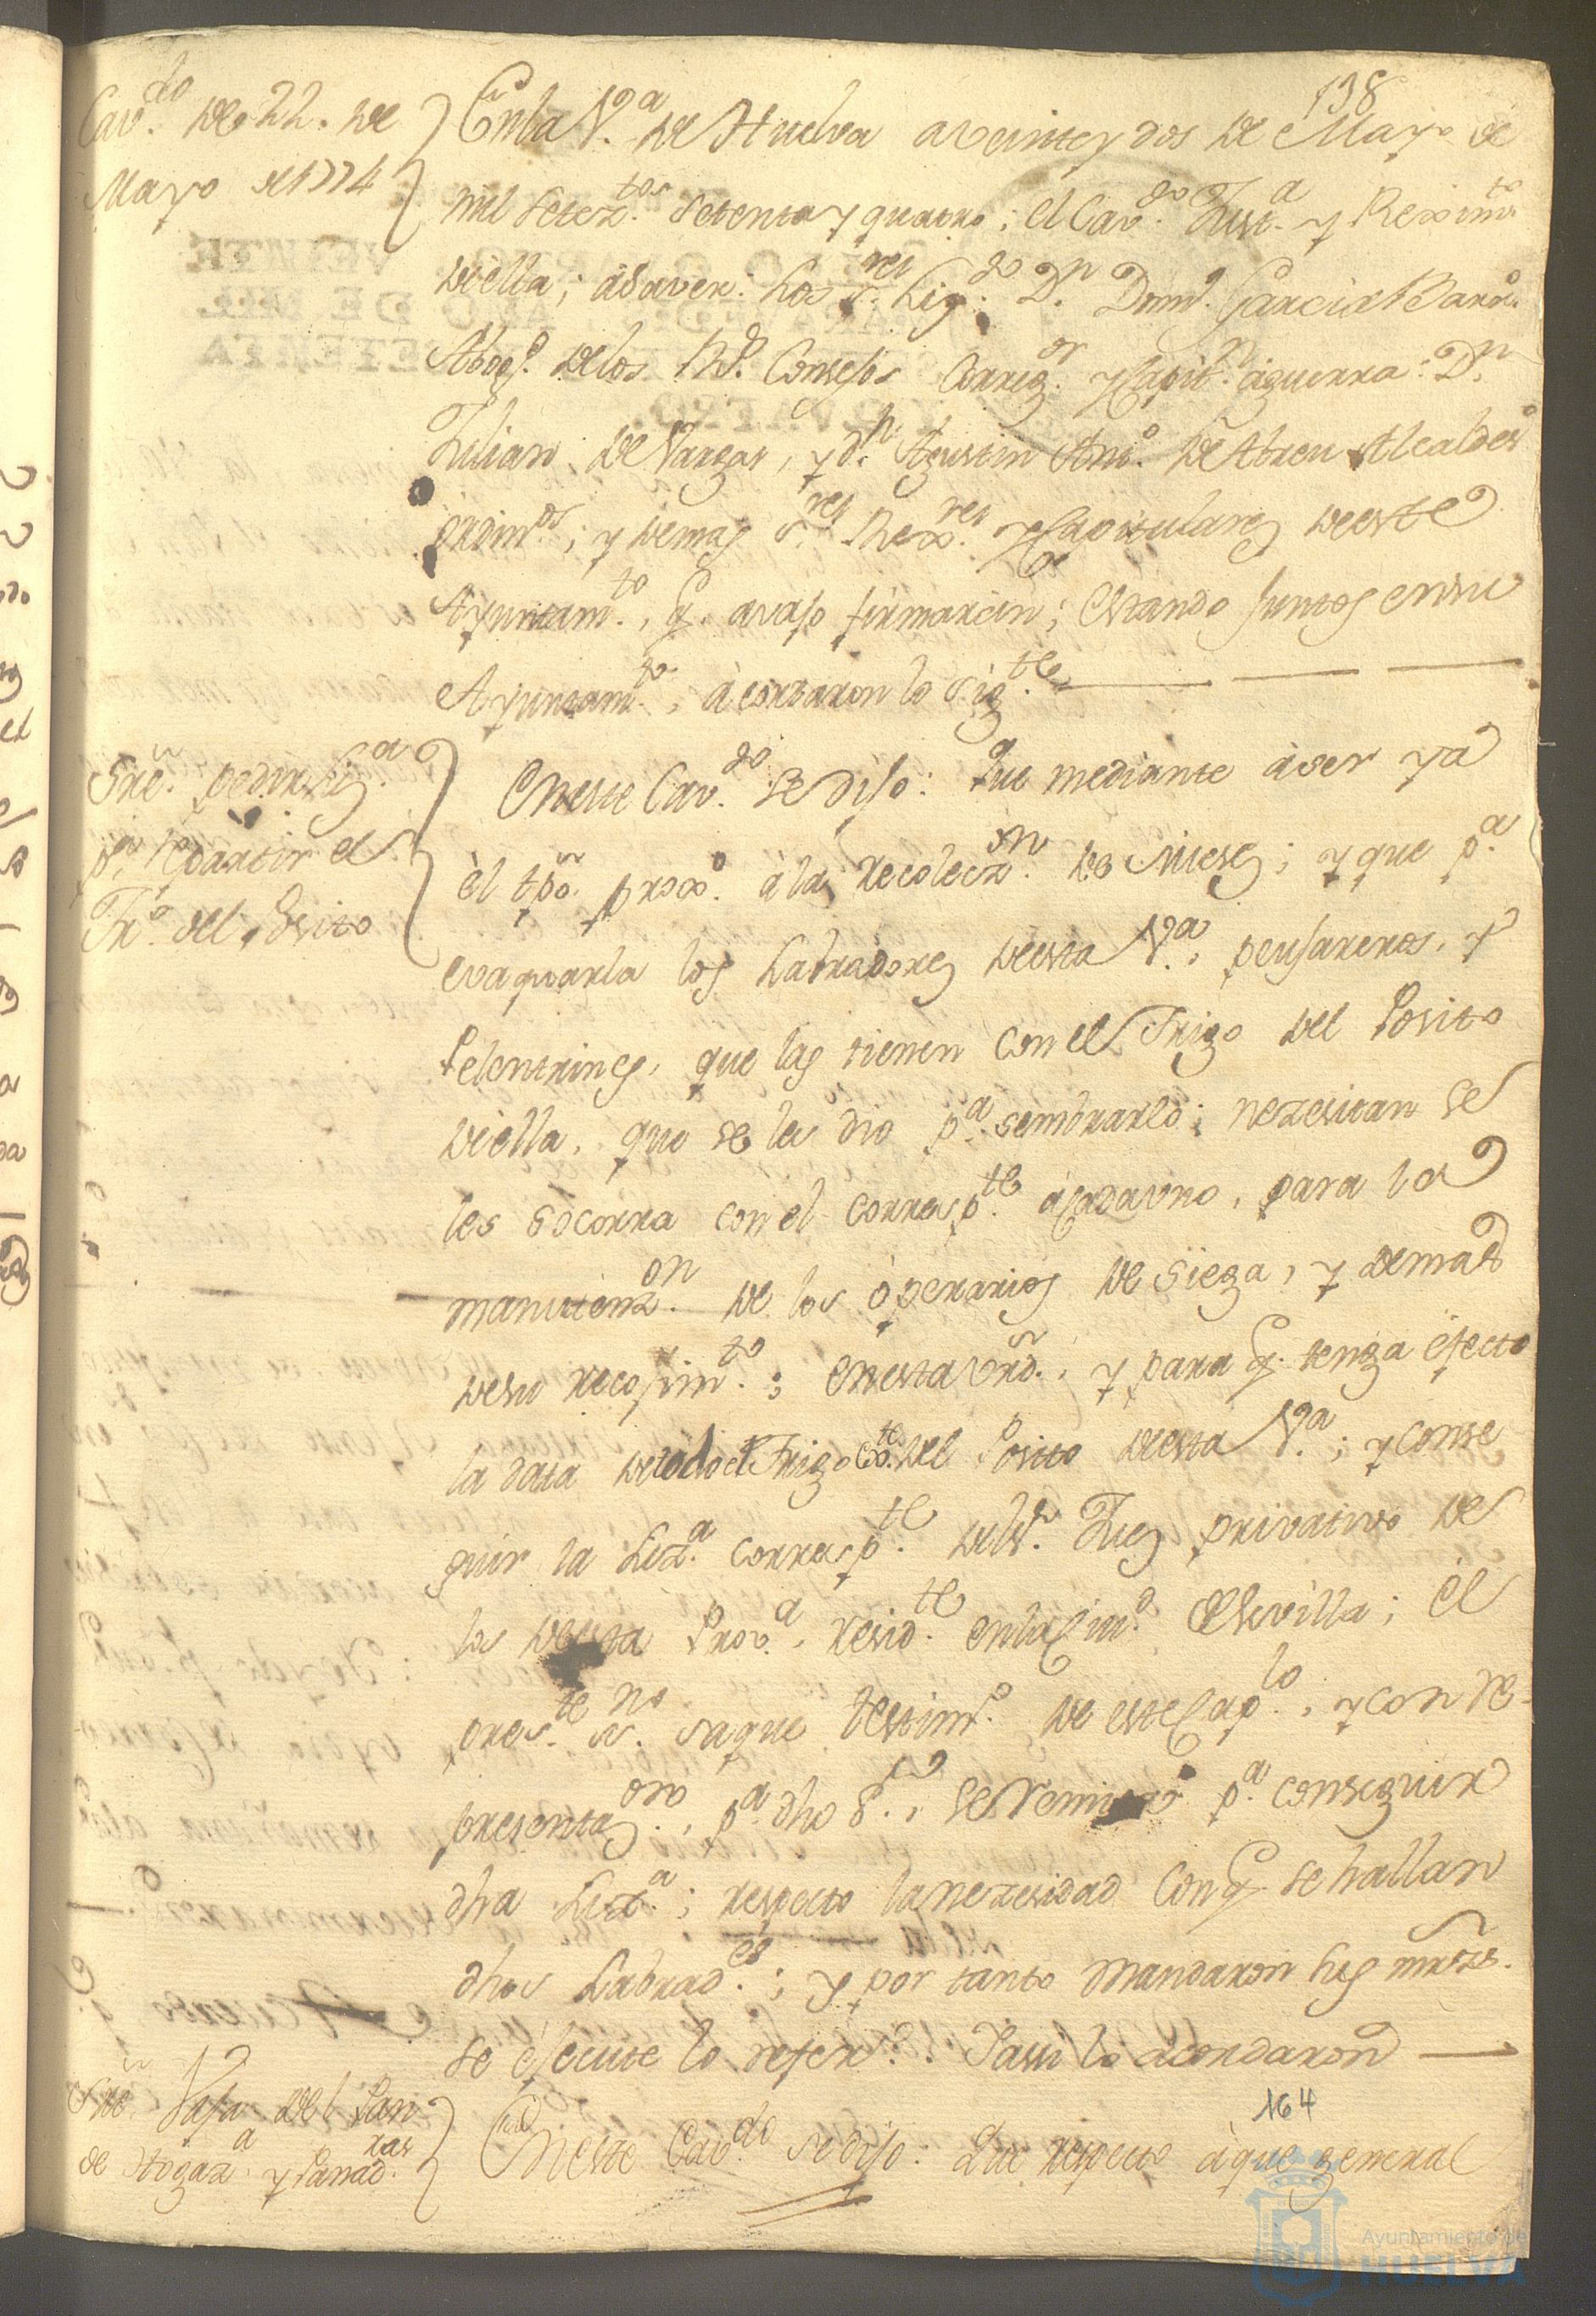 138
Cav.do de 22. de
Mayo de 1774
En la V.a de Huelva a veinte y dos de Mayo de
mil setez.tos setenta y quatro; el Cav.do Just.a y Reximto
de ella; á saver: Los S.res Liz.do D.n Dom.o Garcia Baro.
Abog.o de los R.s Consejos Correg.or y Capit.n á guerra: D.n
Julian de Vargas, y D.n Agustin Ant.o de Abreu Alcaldes
ordin.os; y demas S.res Rex.res y Capitulares de este
Ayuntam.to, q. avajo firmarán; Estando juntos en su
Ayuntam.to, acordaron lo sig.te
Sre. pedir Liz.a
p.a repartir el
Tr.o del Posito
En este Cav.do se dijo: Que mediante á ser ya
él tpo. prox.o á la recolecz.on de Mieses; y que p.a
evaquarla los Labradores de esta V.a, peujareros, y
Pelentrines, que las tienen con el Trigo del Posito
de ella, que se les dio p.a sembrarlo; nezesitan se
les socorra con el corresp.te á cada uno, para la
manutenz.on de los operarios de siega, y demas
de su recojim.to; En esta vrd., y para q. tenga efecto
la data de todo el Trigo ex.te del Posito de esta V.a; y conse
guir la Liz.a corresp.te del S.r Juez privativo de
los de esta Prov.a, resid.te en la Ciu.d de Sevilla; el
pres.te ss.no saque testim.o de este Cap.lo, y con re-
presentaz.on, p.a dho S.r, se remita p.a conseguir
dha Liz.a; respecto la nezesidad con q. se hallan
dhos Labrad.es; y por tanto mandaron sus mrzds.
se ejecute lo refer.do. Y assi lo acordaron
Sre. Vaja del Pan
de Hogaz.a y Panad.ras
164
En este Cav.do se dijo: Que respecto á que general
Ayuntamiento de
HUELVA